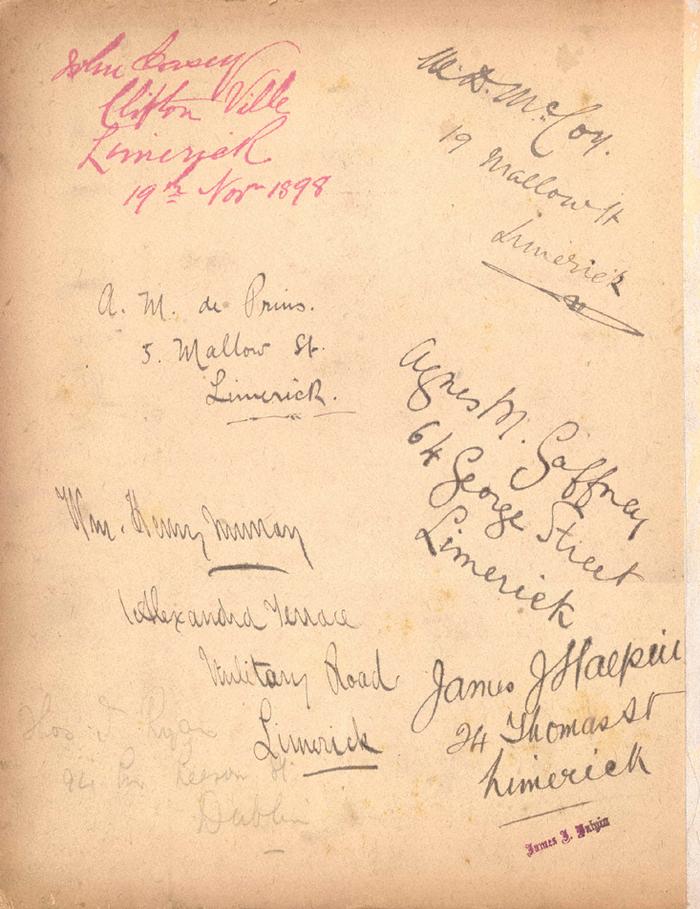 John
Clifton Ville
Limerick
19th Novr 1898
W. D. McCoy.
19 Mallow St
Limerick
A. M. de Prins.
5. Mallow St.
Limerick.
Agnes M. Gaffney
64 George Street
Limerick
Wm. Henry Murray
1 Alexandra Terrace
Military Road
Limerick
James J Halpin
24 Thomas St
Limerick
James J. Halpin
Thos J. Ryan
94 Leeson St
Dublin